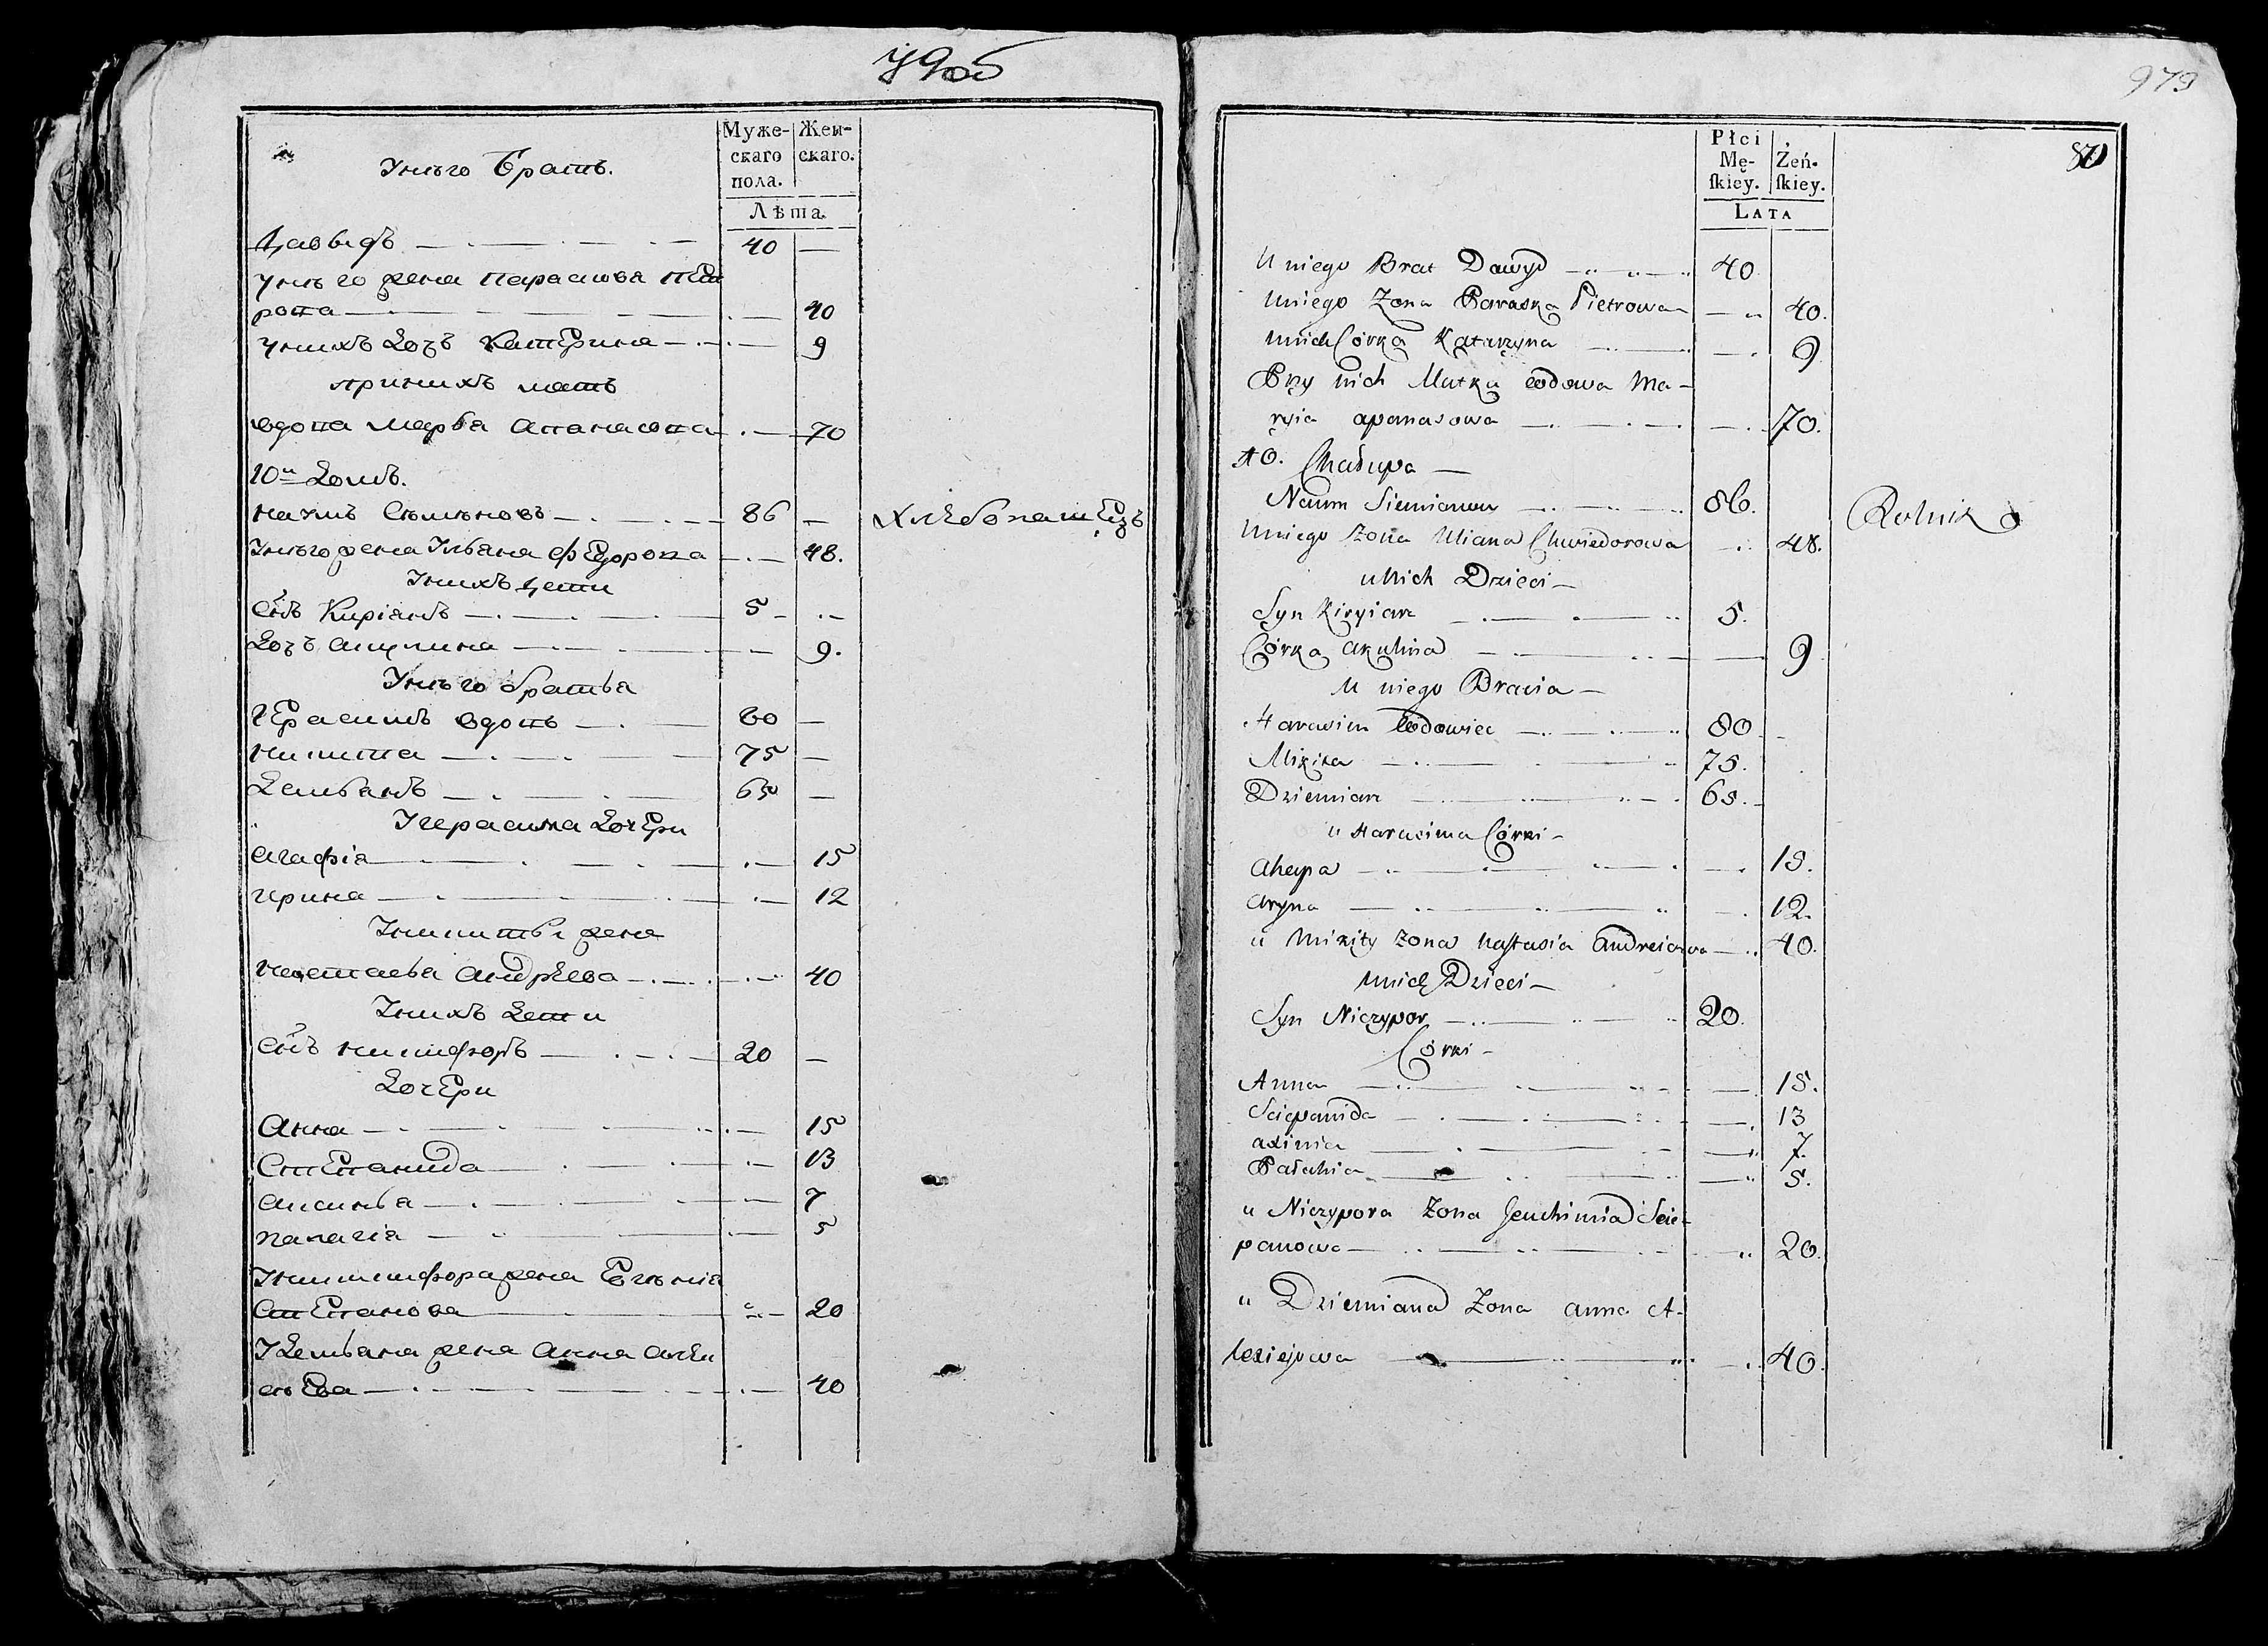 79об
Муже- Жен-
скаго скаго.
пола.
Лѣта.
У него братъ.
Давыдъ 40 —
У него жена Параскова Пет
рова 40
У нихъ дочь Катерина 9
При нихъ мать
вдова Марья Апанасова 70
10й Домъ.
Наумъ Семеновъ 86 — Хлебопашецъ
У него жена Ульяна Федорова 48.
У нихъ дети
Сынъ Киріянъ 5
Дочь Акулина 9.
У него братья
Герасимъ вдовъ 80 —
Никита 75 —
Демьянъ 65 —
У Герасима дочери
Агафія 15
Ирина 12
У Никиты жена
Настасья Андреева 40
У нихъ дети
Сынъ Никифоръ 20 —
Дочери
Анна 15
Степанида 13
Аксинья 7
Палагія 5
У Никифора жена
Степанова 20
У Демьяна жена Анна Алек
сеева 40
979
80
Płci
Mę- Żeń-
ſkiey. ſkiey.
LATA
U niego Brat Dawyd 40
U niego Żona Paraska Pietrowa 40.
U nich Córka Katarzyna 9
Przy nich Matka wdowa Ma-
rysia apanasowa 70.
10. Chałupa
Naum Siemionow 86. Rolnik
U niego żona Uliana Chwiedorowa 48.
u Nich Dzieci
Syn Kiryian 5.
Córka akulina 9
U niego Bracia
Harasim wdowiec 80
Mikita 75.
Dziemian 65.
u Harasima Córki
Ahapa 15.
Aryna 12.
u Mikity żona Nastasia Andreiowa 40.
U nich Dzieci
Syn Niczypor 20.
Córki
Anna 15.
Sciepanida 13
axinia 7.
Pałahia 5.
u Niczypora żona Jeuchimia Scie-
panowa 20.
u Dziemiana Żona anna A-
lexiejowa 40.